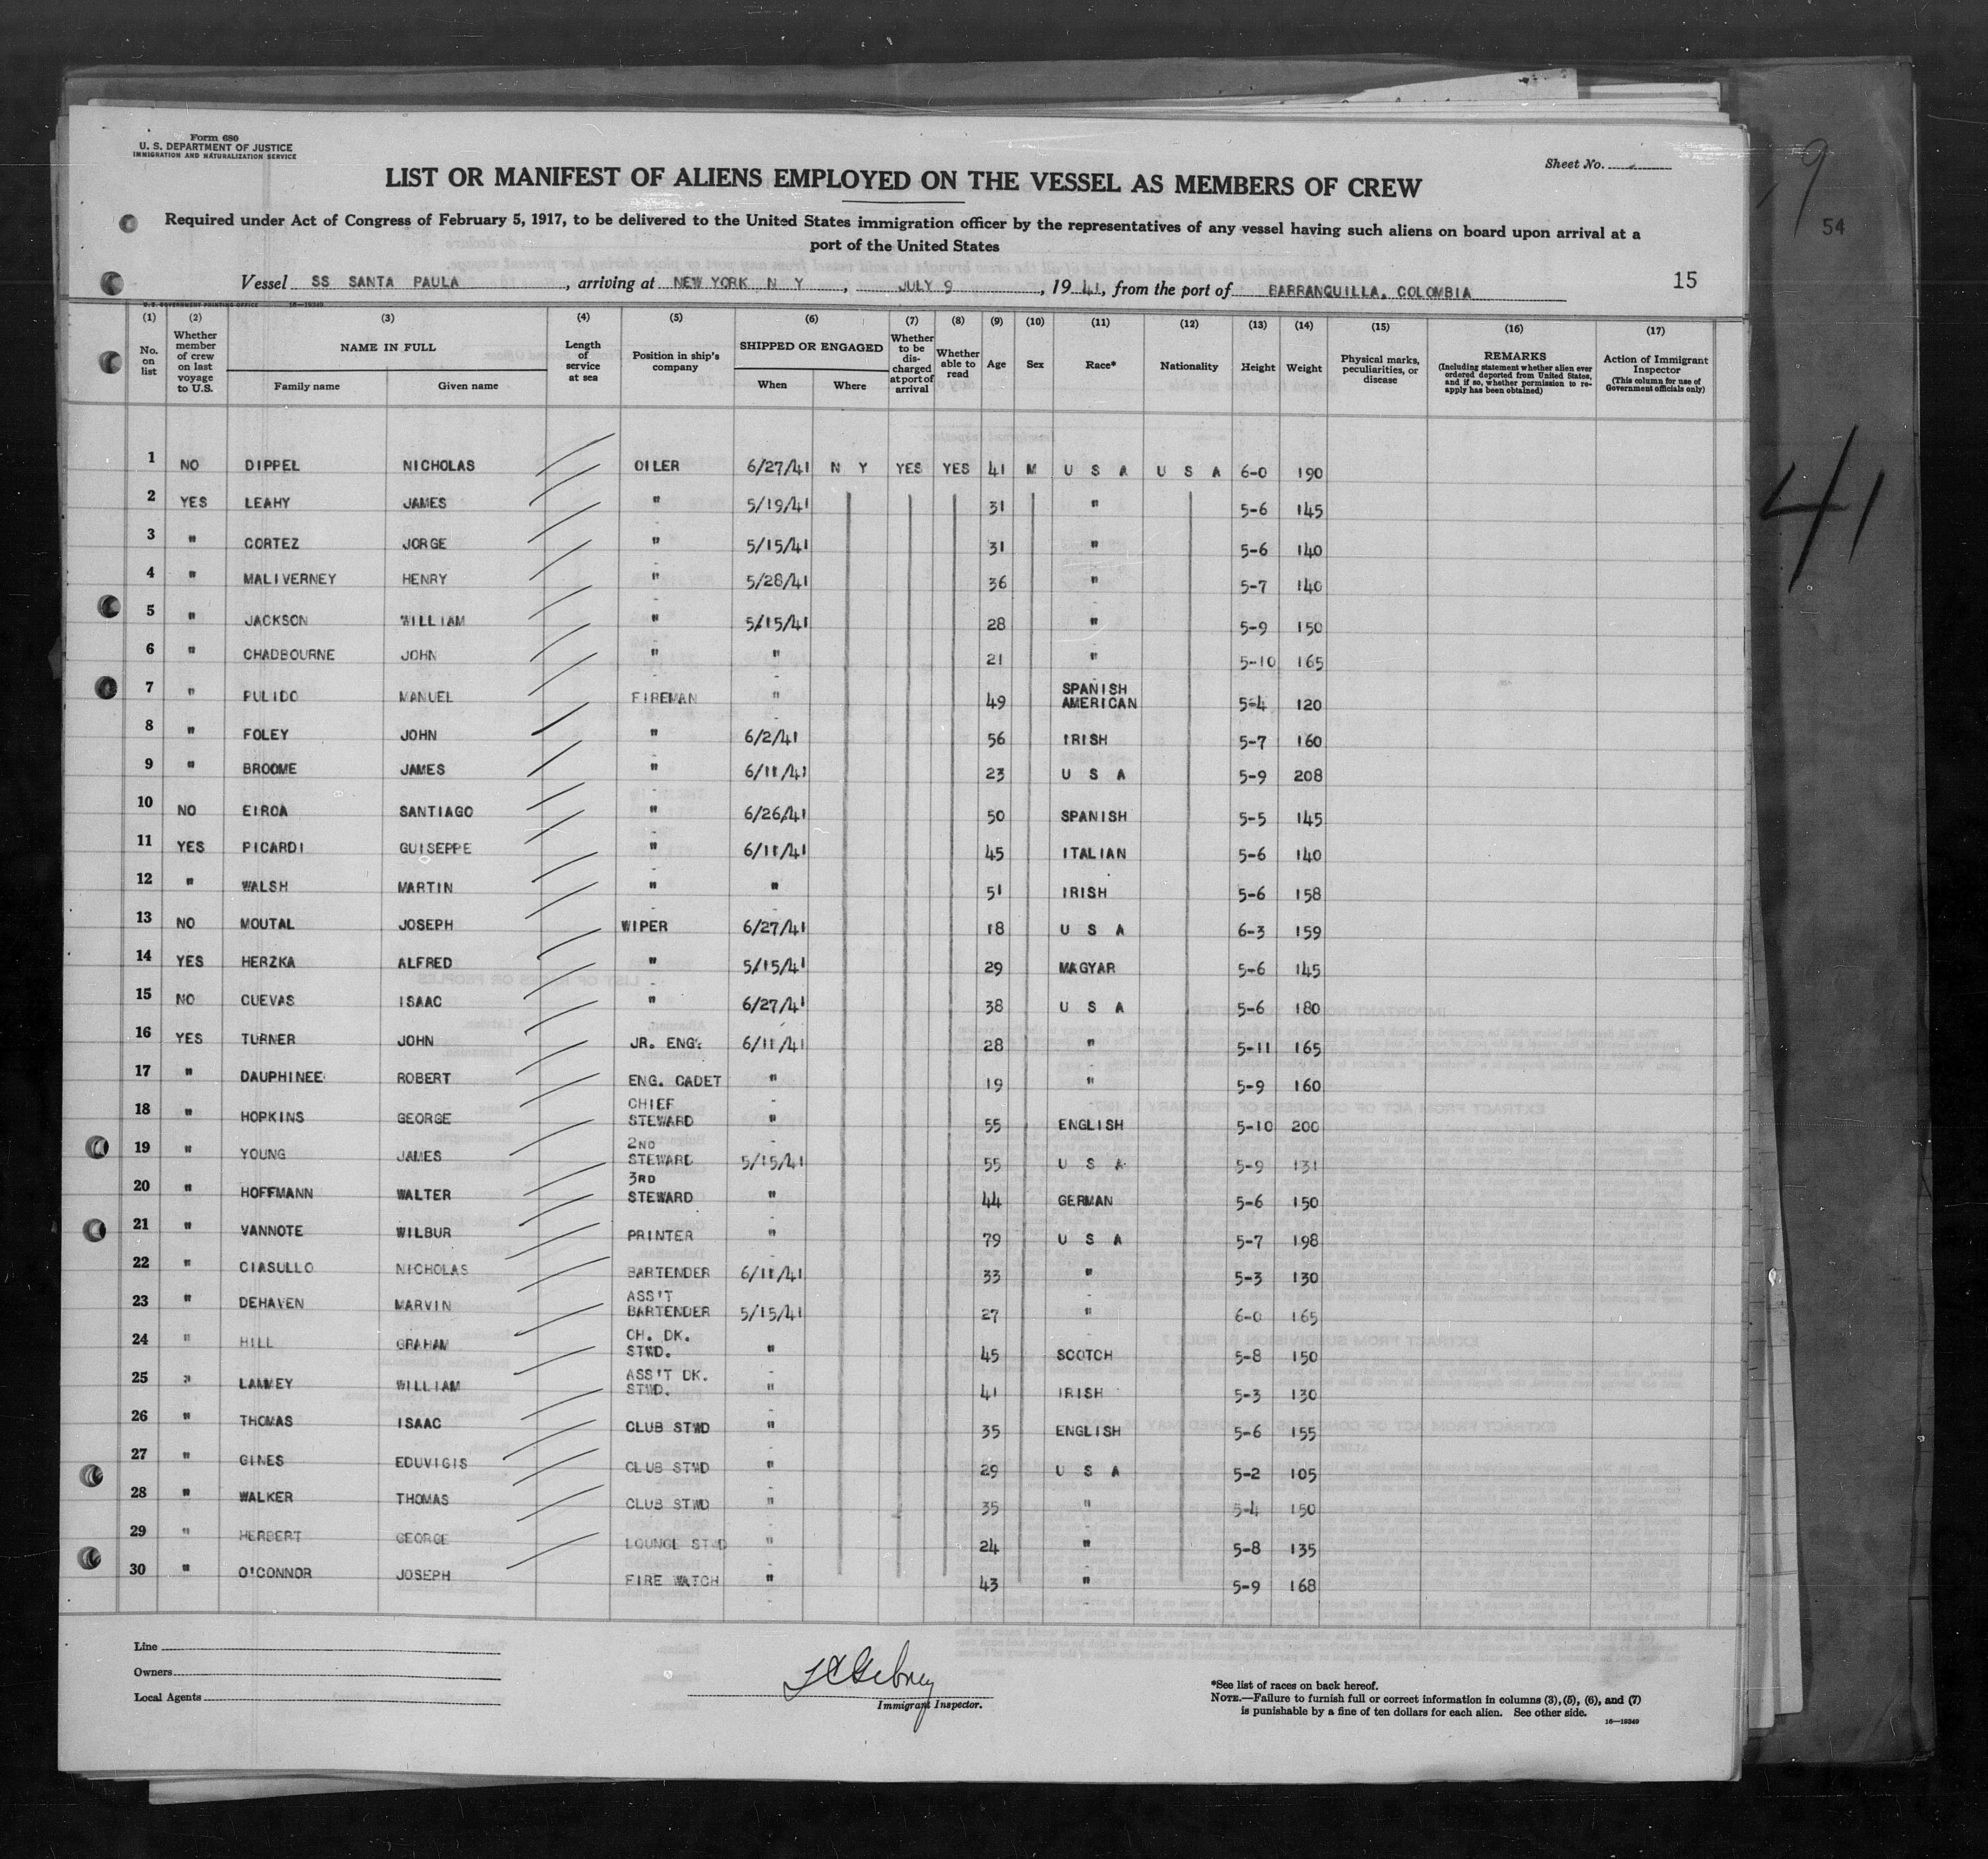 Form 680
U. S. DEPARTMENT OF JUSTICE
IMMIGRATION AND NATURALIZATION SERVICE
Sheet No.
LIST OR MANIFEST OF ALIENS EMPLOYED ON THE VESSEL AS MEMBERS OF CREW
Required under Act of Congress of February 5, 1917, to be delivered to the United States immigration officer by the representatives of any vessel having such aliens on board upon arrival at a
port of the United States
Vessel SS SANTA PAULA, arriving at NEW YORK N Y, JULY 9, 1941, from the port of BARRANQUILLA, COLOMBIA
15
9
54
41
U. S. GOVERNMENT PRINTING OFFICE 16—19349
(1) (2) (3) (4) (5) (6) (7) (8) (9) (10) (11) (12) (13) (14) (15) (16) (17)
No. on list
Whether member of crew on last voyage to U.S.
NAME IN FULL
Family name Given name
Length of service at sea
Position in ship's company
SHIPPED OR ENGAGED
When Where
Whether to be discharged at port of arrival
Whether able to read
Age Sex Race* Nationality Height Weight
Physical marks, peculiarities, or disease
REMARKS
(Including statement whether alien ever ordered deported from United States, and if so, whether permission to reapply has been obtained)
Action of Immigrant Inspector
(This column for use of Government officials only)
1 NO DIPPEL NICHOLAS OILER 6/27/41 N Y YES YES 41 M U S A U S A 6-0 190
2 YES LEAHY JAMES " 5/19/41 31 " 5-6 145
3 " CORTEZ JORGE " 5/15/41 31 " 5-6 140
4 " MALIVERNEY HENRY " 5/28/41 36 " 5-7 140
5 " JACKSON WILLIAM " 5/15/41 28 " 5-9 150
6 " CHADBOURNE JOHN " " 21 " 5-10 165
7 " PULIDO MANUEL FIREMAN " 49 SPANISH AMERICAN 5-4 120
8 " FOLEY JOHN " 6/2/41 56 IRISH 5-7 160
9 " BROOME JAMES " 6/11/41 23 U S A 5-9 208
10 NO EIROA SANTIAGO " 6/26/41 50 SPANISH 5-5 145
11 YES PICARDI GUISEPPE " 6/11/41 45 ITALIAN 5-6 140
12 " WALSH MARTIN " " 51 IRISH 5-6 158
13 NO MOUTAL JOSEPH WIPER 6/27/41 18 U S A 6-3 159
14 YES HERZKA ALFRED " 5/15/41 29 MAGYAR 5-6 145
15 NO CUEVAS ISAAC " 6/27/41 38 U S A 5-6 180
16 YES TURNER JOHN JR. ENG. 6/11/41 28 " 5-11 165
17 " DAUPHINEE ROBERT ENG. CADET " 19 " 5-9 160
18 " HOPKINS GEORGE CHIEF STEWARD " 55 ENGLISH 5-10 200
19 " YOUNG JAMES 2ND STEWARD 5/15/41 55 U S A 5-9 131
20 " HOFFMANN WALTER 3RD STEWARD " 44 GERMAN 5-6 150
21 " VANNOTE WILBUR PRINTER " 79 U S A 5-7 198
22 " CIASULLO NICHOLAS BARTENDER 6/11/41 33 " 5-3 130
23 " DEHAVEN MARVIN ASS'T BARTENDER 5/15/41 27 " 6-0 165
24 " HILL GRAHAM CH. DK. STWD. " 45 SCOTCH 5-8 150
25 " LAMMEY WILLIAM ASS'T DK. STWD. " 41 IRISH 5-3 130
26 " THOMAS ISAAC CLUB STWD " 35 ENGLISH 5-6 155
27 " GINES EDUVIGIS CLUB STWD " 29 U S A 5-2 105
28 " WALKER THOMAS CLUB STWD " 35 " 5-4 150
29 " HERBERT GEORGE LOUNGE STWD " 24 " 5-8 135
30 " O'CONNOR JOSEPH FIRE WATCH " 43 " 5-9 168
Line
Owners
Local Agents
Immigrant Inspector.
*See list of races on back hereof.
NOTE.—Failure to furnish full or correct information in columns (3), (5), (6), and (7)
is punishable by a fine of ten dollars for each alien. See other side.
16—19349